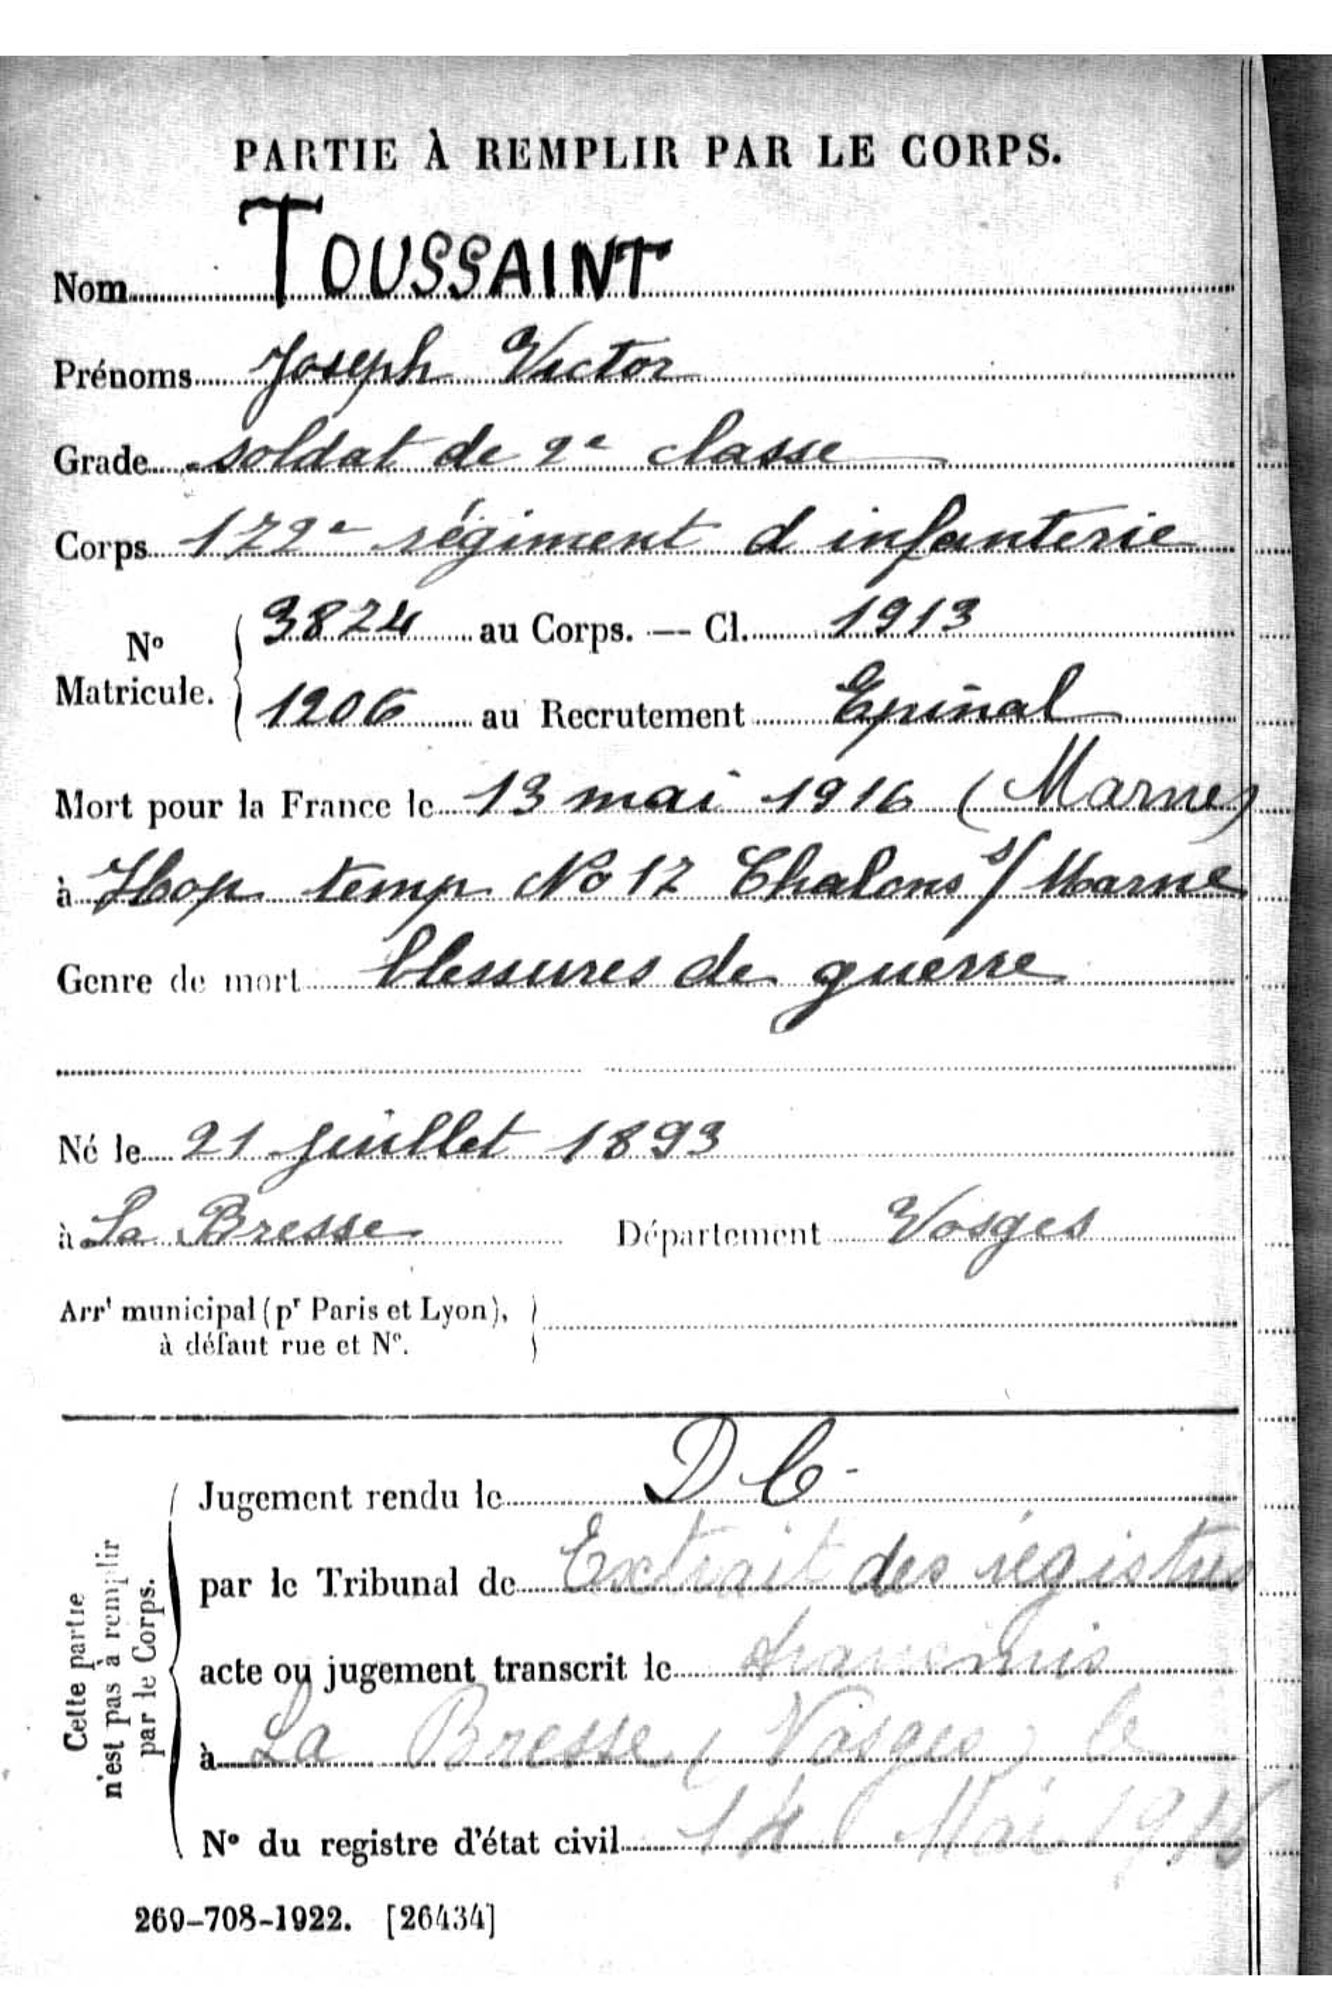 PARTIE À REMPLIR PAR LE CORPS.
Nom TOUSSAINT
Prénoms Joseph Victor
Grade soldat de 2e classe
Corps 172e régiment d infanterie
No Matricule. 3824 au Corps. — Cl. 1913
1206 au Recrutement Epinal
Mort pour la France le 13 mai 1916 (Marne)
à Hop temp No 17 Chalons s/ Marne
Genre de mort blessures de guerre
Né le 21 juillet 1893
à La Bresse Département Vosges
Arrt municipal (pr Paris et Lyon),
à défaut rue et No.
Cette partie
n'est pas à remplir
par le Corps.
Jugement rendu le D C -
par le Tribunal de Extrait des régistres
acte ou jugement transcrit le transmis
à La Bresse (Vosges) le
No du registre d'état civil 14 Mai 1916
269-708-1922. [26434]